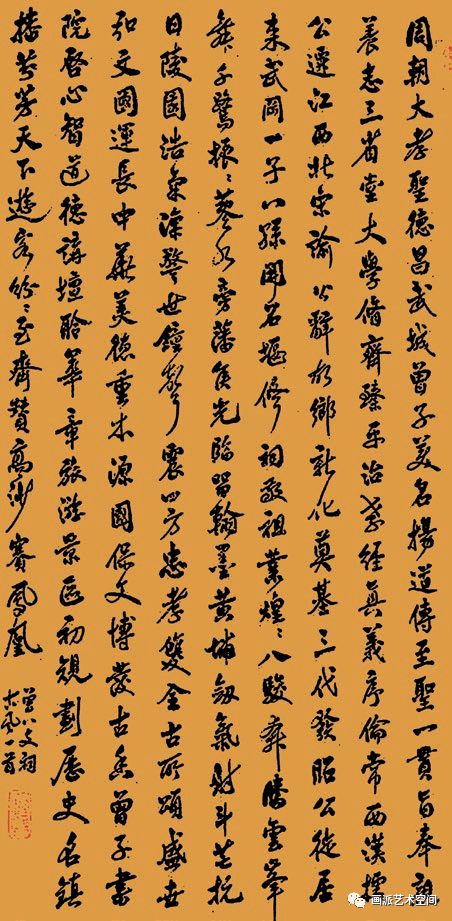 周朝大孝聖德昌武城曾子美名揚道傳至聖一貫旨奉親
養志三省堂大學脩齊臻平治孝經真義序倫常西漢據
公遷江西北宋諭公辭故鄉新化奠基三代發昭公徙居
來武岡一子八孫開名堰修祠敬祖業煌々八駿奔騰雲峯
舞千鷺振々蓼水旁藩侯光臨留翰墨黄埔劍氣射斗芒抗
日陵園浩氣深警世鐘聲震四方忠孝雙全古所頌盛世
弘文國運長中華美德重本源國保文博發古香曾子書
院啓心智道德講壇聆華章旅游景區初規劃歷史名鎮
播芬芳天下遊客紛々至齊贊高沙賽鳳凰
曾八支祠
古風一首
画派艺术空间